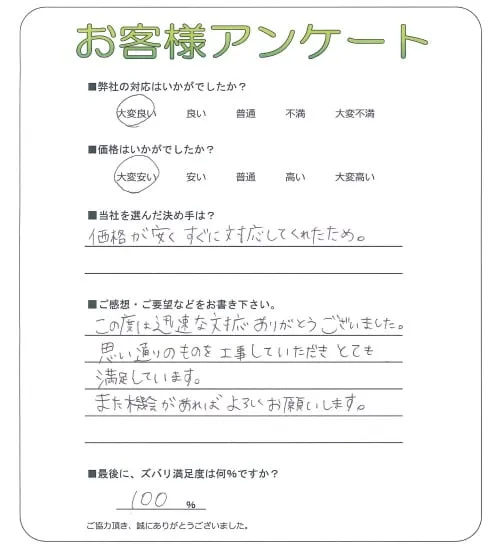 お客様アンケート
■弊社の対応はいかがでしたか？
大変良い 良い 普通 不満 大変不満
■価格はいかがでしたか？
大変安い 安い 普通 高い 大変高い
■当社を選んだ決め手は？
価格が安く すぐに対応してくれたため。
■ご感想・ご要望などをお書き下さい。
この度は迅速な対応ありがとうございました。
思い通りのものを工事していただき とても
満足しています。
また機会があればよろしくお願いします。
■最後に、ズバリ満足度は何%ですか？
100 %
ご協力頂き、誠にありがとうございました。